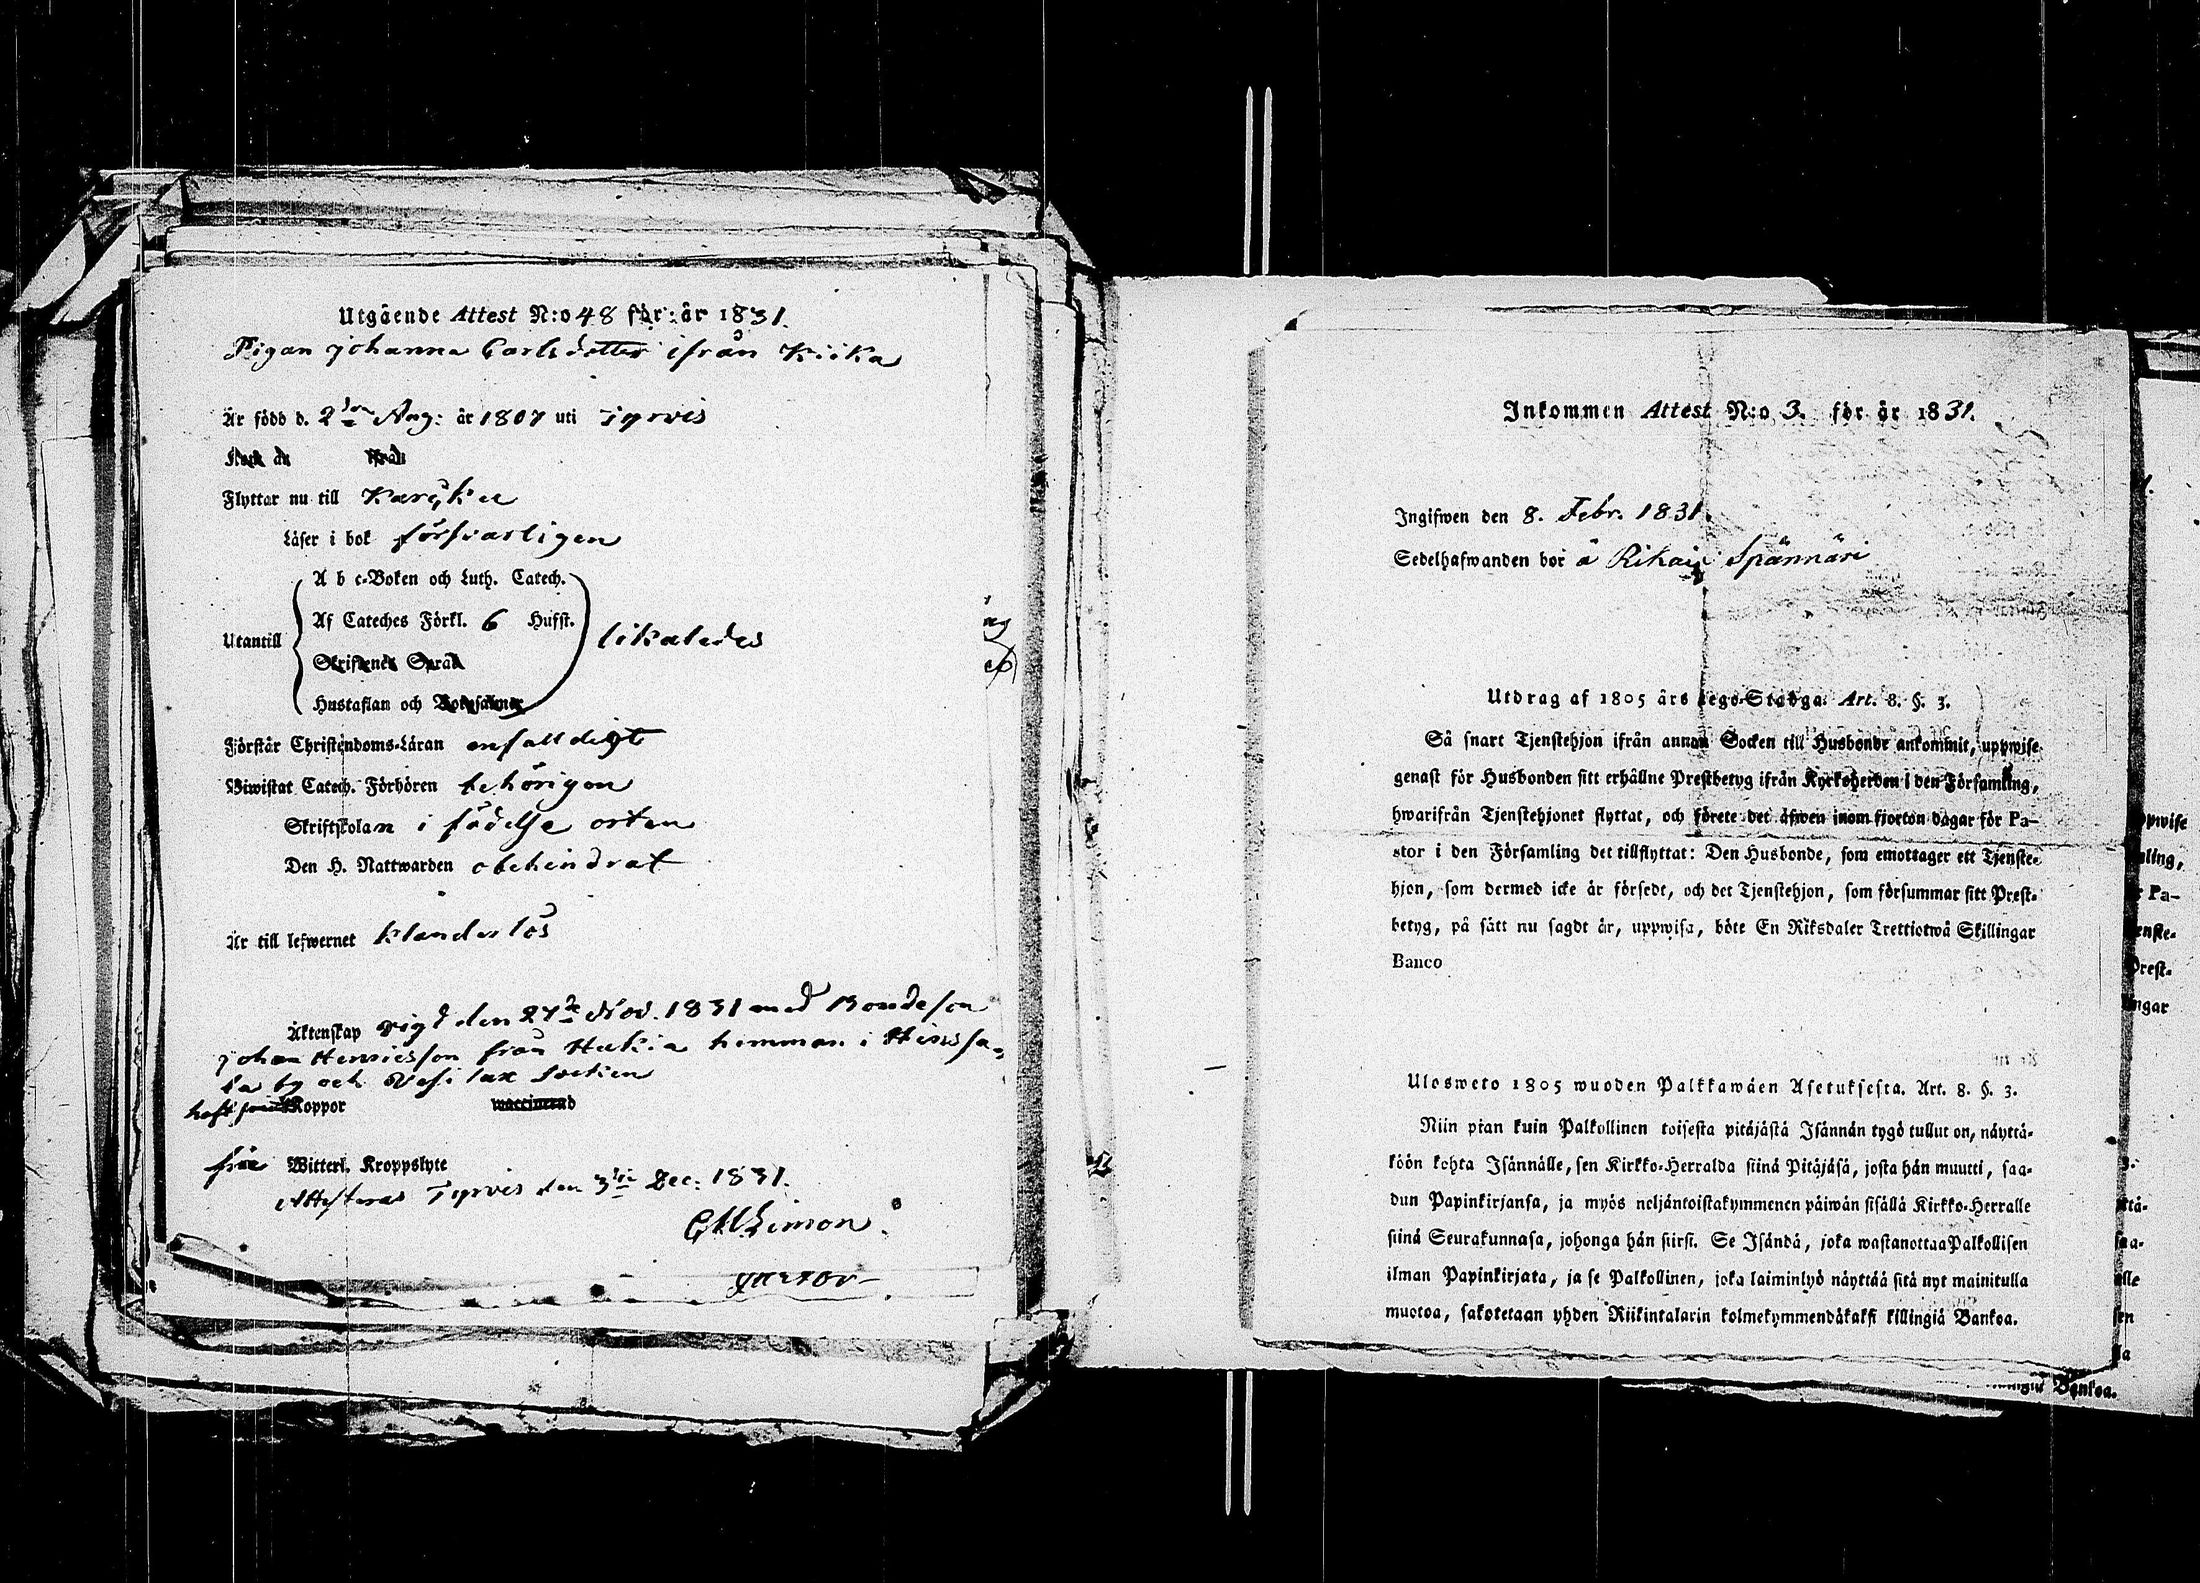 Utgående Attest N:o 48 för år 1831.
Pigan Johanna Carlsdotter ifrån Kiika
Är född d. 2dra Aug: år 1807 uti Tyrvis
Flyttar nu till Karkku
Läser i bok försvarligen
A b c-Boken och Luth. Catech.
Af Cateches Förkl. 6 Hufst.
Utantill likaledes
Skriftenes Språk
Hustaflan och Botpsalmer
Förstår Christendoms-Läran enfalldigt
Biwistat Catech. Förhören behörigen
Skriftskolan i födelse orten
Den H. Nattwarden obehindrat
Är till lefwernet klanderlös
Äktenskap vigd den 27de Nov. 1831 med Bondeson
Johan Henricsson från hemman i
la by och Vesilax Socken
haft Koppor vaccinerad
fri Witterl. Kroppslyte
Attesteras Tyrvis den 3die Dec: 1831.
Limon
Pastor
Inkommen Attest N:o 3. för år 1831.
Ingifwen den 8. Febr. 1831.
Sedelhafwanden bor å Spännäri
Utdrag af 1805 års Lego-Stadga. Art. 8. §. 3.
Så snart Tjenstehjon ifrån annan Socken till Husbonde ankommit, uppwise
genast för Husbonden sitt erhållne Prestbetyg ifrån Kyrkoherden i den Församling,
hwarifrån Tjenstehjonet flyttat, och förete det äfwen inom fjorton dagar för Pa-
stor i den Församling det tillflyttat: Den Husbonde, som emottager ett Tjenste-
hjon, som dermed icke är försedt, och det Tjenstehjon, som försummar sitt Prest-
betyg, på sätt nu sagdt är, uppwisa, böte En Riksdaler Trettiotwå Skillingar
Banco
Ulosweto 1805 wuoden Palkkawäen Asetuksesta. Art. 8. §. 3.
Niin pian kuin Palkollinen toisesta pitäjästä Isännän tygö tullut on, näyttä-
köön kohta Isännälle, sen Kirkko-Herralda siinä Pitäjäsä, josta hän muutti, saa-
dun Papinkirjansa, ja myös neljäntoistakymmenen päiwän sisällä Kirkko-Herralle
siinä Seurakunnasa, johonga hän siirsi. Se Isändä, joka wastanottaa Palkollisen
ilman Papinkirjata, ja se Palkollinen, joka laiminlyö näyttää sitä nyt mainitulla
muotoa, sakotetaan yhden Riikintalarin kolmekymmendäkaksi killingiä Bankoa.